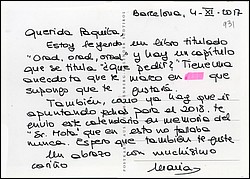 Barcelona, 4-XI-2017
931
Querida Paquita:
Estoy leyendo un libro titulado
"Orad, orad, orad" y hay un capítulo
que se titula "¿Qué pedir?" Tiene una
anécdota que te marco en que
supongo que te gustará.
También, como ya hay que ir
apuntando cosas para el 2018, te
envío este calendario en memoria del
"Sr. Mota" que en esto no fallaba
nunca. Espero que también te guste
Un abrazo con muchísimo
cariño
María